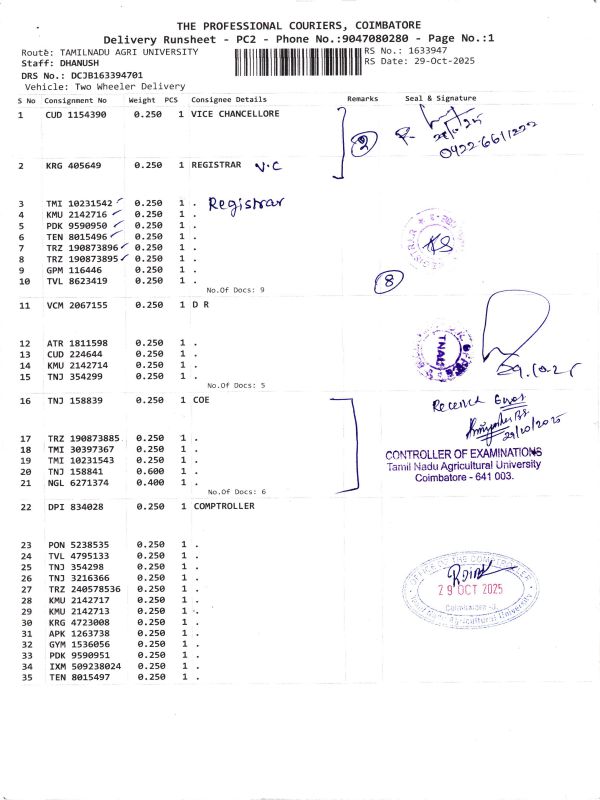 THE PROFESSIONAL COURIERS, COIMBATORE
Delivery Runsheet - PC2 - Phone No.:9047080280 - Page No.:1
Route: TAMILNADU AGRI UNIVERSITY
RS No.: 1633947
Staff: DHANUSH
RS Date: 29-Oct-2025
DRS No.: DCJB163394701
Vehicle: Two Wheeler Delivery
S No Consignment No Weight PCS Consignee Details Remarks Seal & Signature
1 CUD 1154390 0.250 1 VICE CHANCELLORE
2
0422-6611222
2 KRG 405649 0.250 1 REGISTRAR V.C
3 TMI 10231542 0.250 1 . Registrar
4 KMU 2142716 0.250 1 .
5 PDK 9590950 0.250 1 .
6 TEN 8015496 0.250 1 .
7 TRZ 190873896 0.250 1 .
8 TRZ 190873895 0.250 1 .
9 GPM 116446 0.250 1 .
10 TVL 8623419 0.250 1 .
No.Of Docs: 9
8
11 VCM 2067155 0.250 1 D R
12 ATR 1811598 0.250 1 .
13 CUD 224644 0.250 1 .
14 KMU 2142714 0.250 1 .
15 TNJ 354299 0.250 1 .
No.Of Docs: 5
TNAU
29.10.25
16 TNJ 158839 0.250 1 COE
29/10/2025
17 TRZ 190873885 0.250 1 .
18 TMI 30397367 0.250 1 .
19 TMI 10231543 0.250 1 .
20 TNJ 158841 0.600 1 .
21 NGL 6271374 0.400 1 .
No.Of Docs: 6
CONTROLLER OF EXAMINATIONS
Tamil Nadu Agricultural University
Coimbatore - 641 003.
22 DPI 834028 0.250 1 COMPTROLLER
23 PON 5238535 0.250 1 .
24 TVL 4795133 0.250 1 .
25 TNJ 354298 0.250 1 .
26 TNJ 3216366 0.250 1 .
27 TRZ 240578536 0.250 1 .
28 KMU 2142717 0.250 1 .
29 KMU 2142713 0.250 1 .
30 KRG 4723008 0.250 1 .
31 APK 1263738 0.250 1 .
32 GYM 1536056 0.250 1 .
33 PDK 9590951 0.250 1 .
34 IXM 509238024 0.250 1 .
35 TEN 8015497 0.250 1 .
OFFICE OF THE COMPTROLLER
29 OCT 2025
Coimbatore-3.
Tamil Nadu Agricultural University